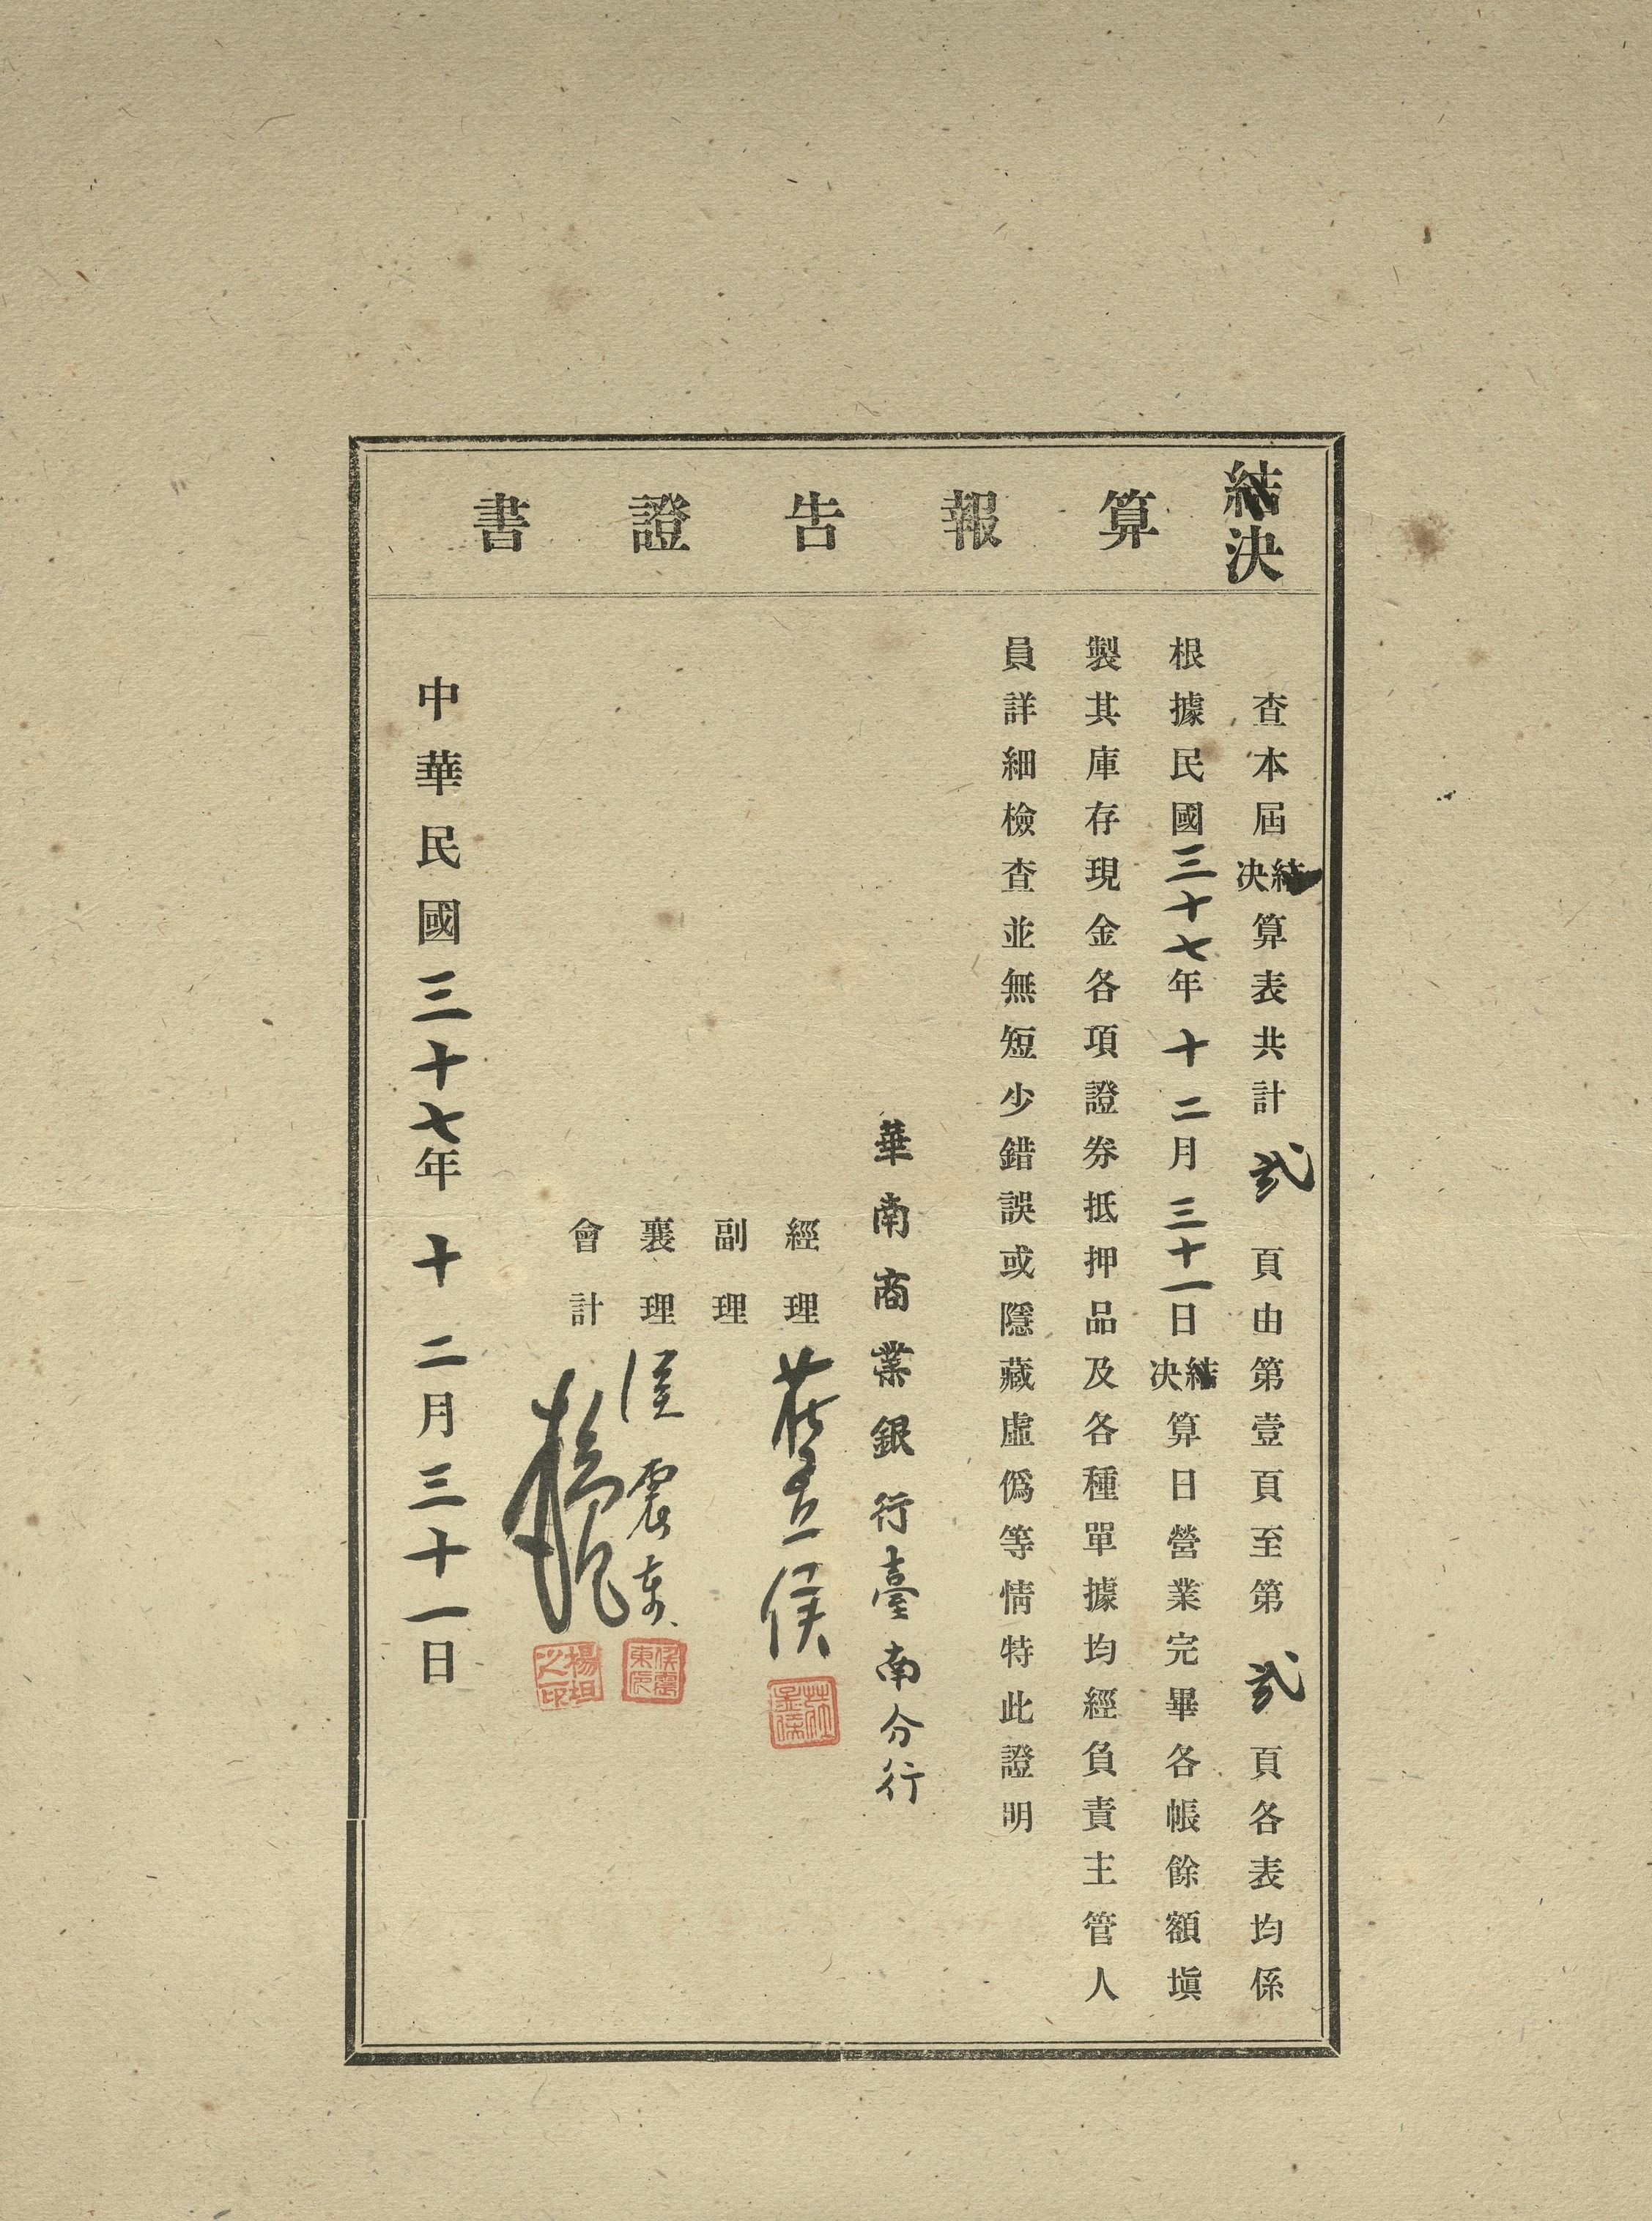 決算報告證書
查本屆決算表共計貳頁由第壹頁至第貳頁各表均係
根據民國三十七年十二月三十一日決算日營業完畢各帳餘額塡
製其庫存現金各項證券抵押品及各種單據均經負責主管人
員詳細檢查並無短少錯誤或隱藏虛僞等情特此證明
華南商業銀行臺南分行
經理 莊孟侯
副理
襄理 侯震東
會計 楊坦
侯震東印
楊坦之印
中華民國三十七年十二月三十一日